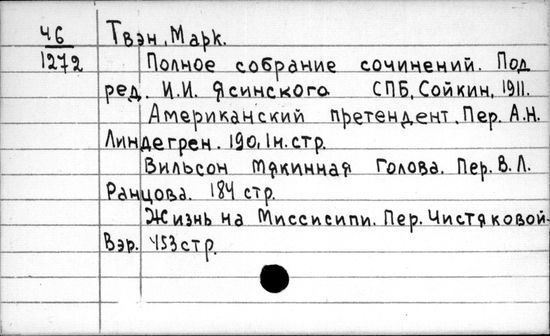 Ч6 Твэн, Марк.
1272 Полное собрание сочинений. Под
ред. И.И. Ясинского СПБ, Сойкин, 1911.
Американский претендент. Пер. А.Н.
Линдегрен. 190, 1н. стр.
Вильсон мякинная голова. Пер. В.Л.
Ранцова. 184 стр.
Жизнь на Миссисипи. Пер. Чистяковой-
Вэр. 453 стр.